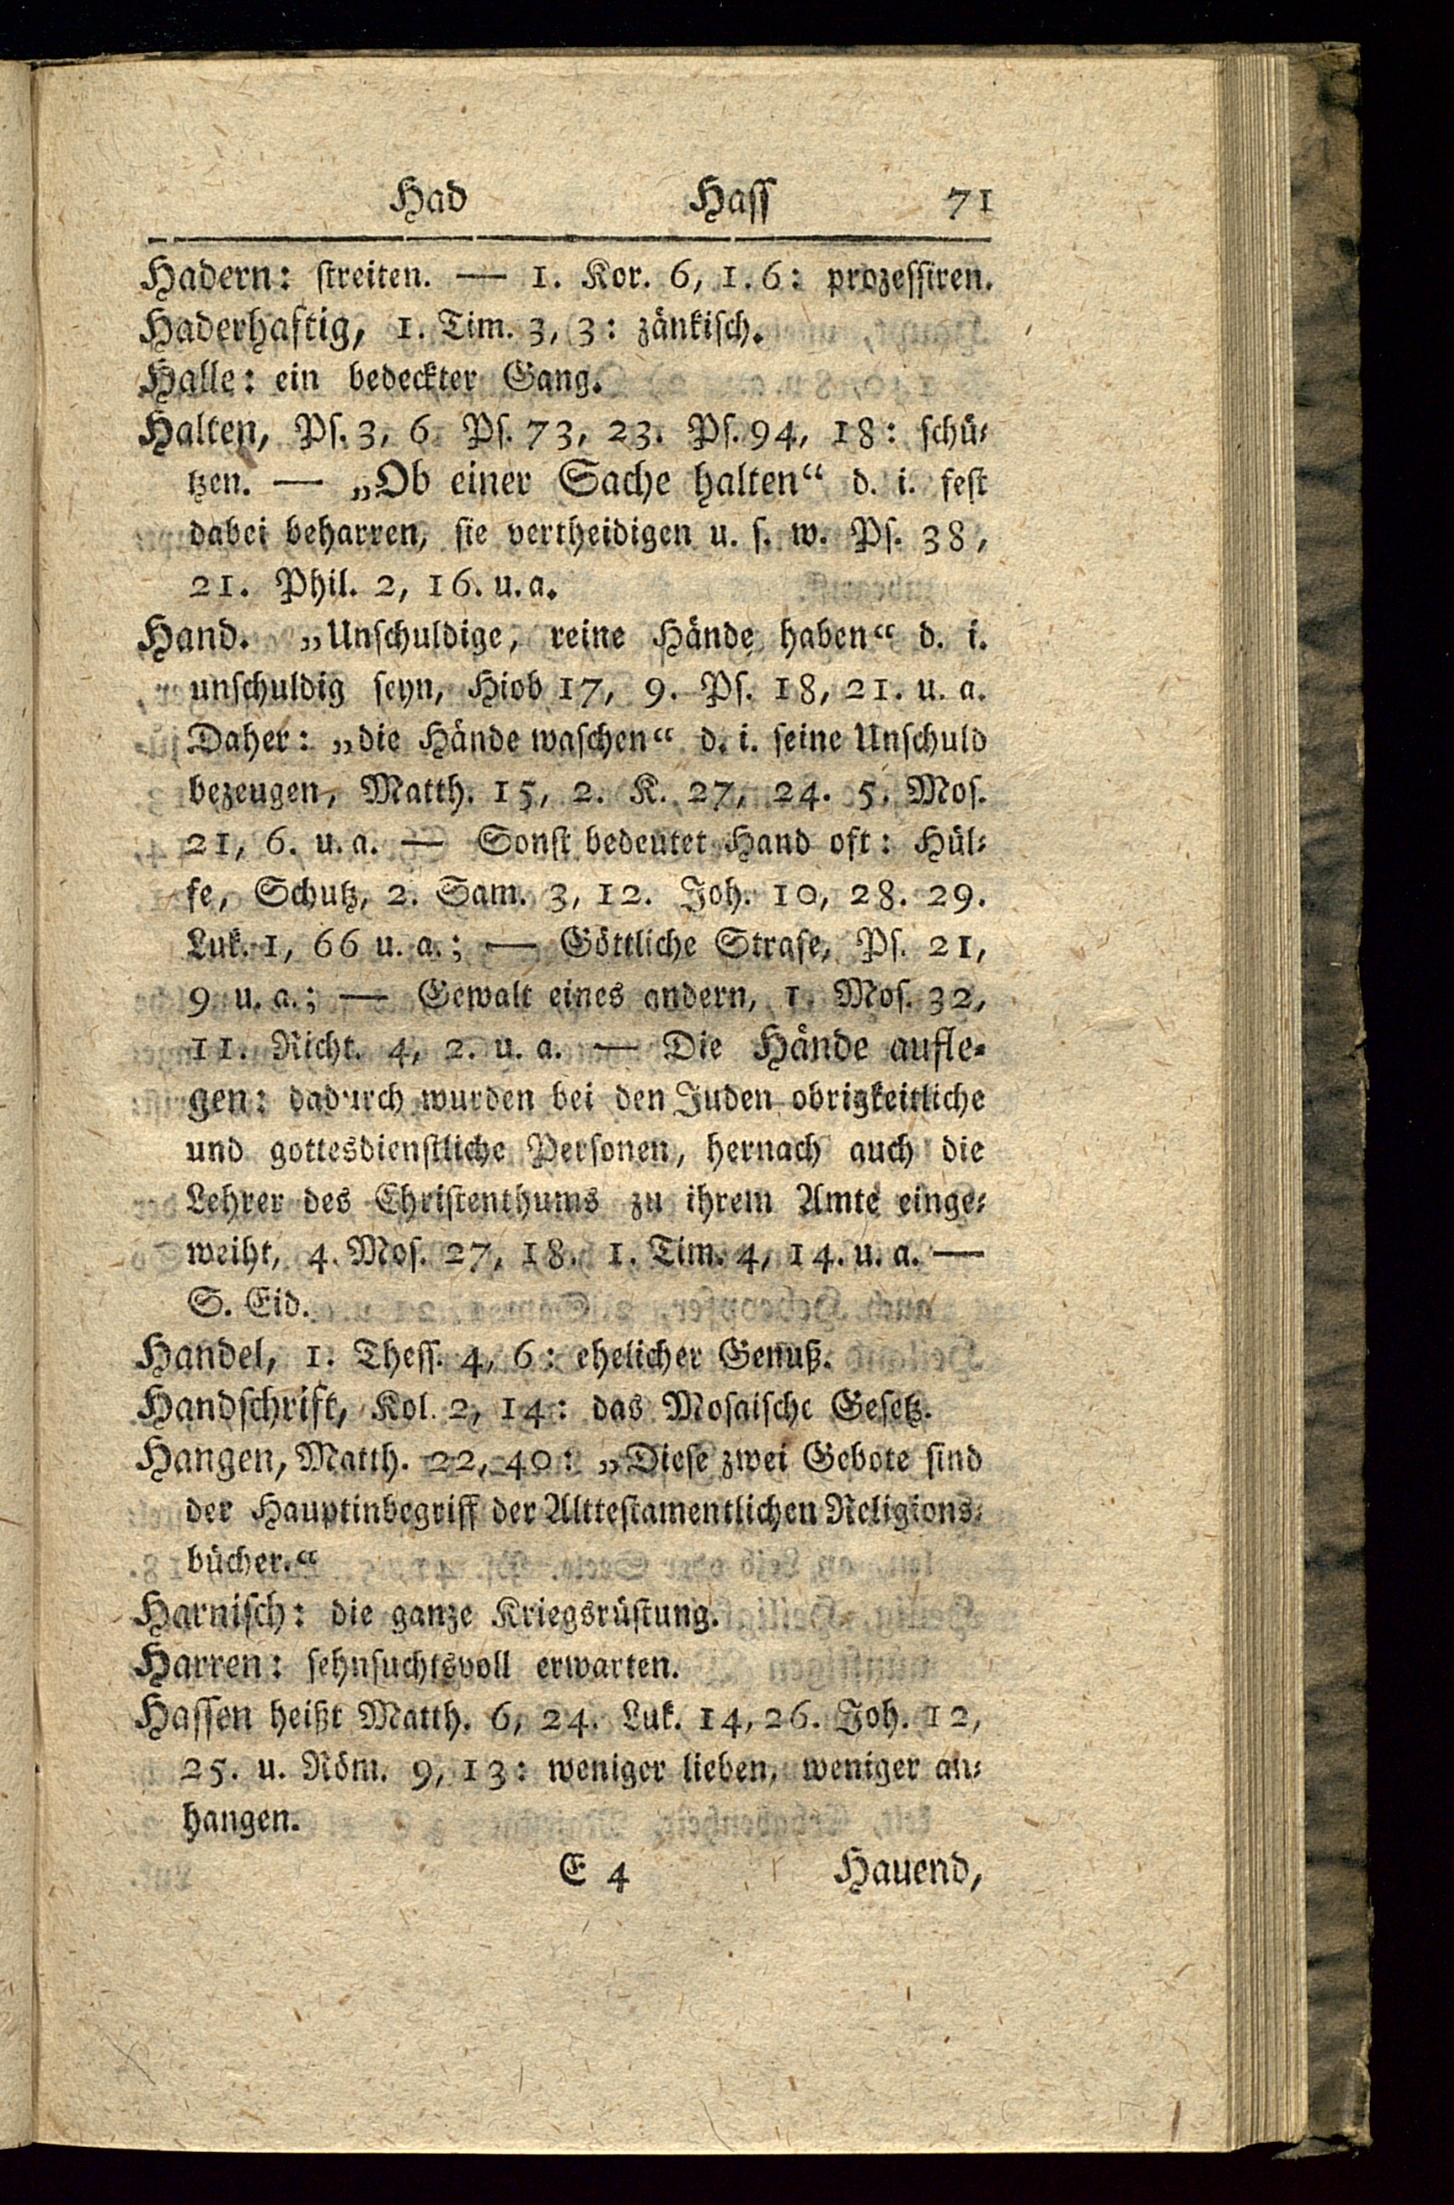 Had Hass 71
Hadern: streiten. — 1. Kor. 6, 1. 6: prozessiren.
Haderhaftig, 1. Tim. 3, 3: zänkisch.
Halle: ein bedeckter Gang.
Halten, Ps. 3, 6. Ps. 73, 23. Ps. 94, 18: schü-
tzen. — „Ob einer Sache halten“ d. i. fest
dabei beharren, sie vertheidigen u. s. w. Ps. 38,
21. Phil. 2, 16. u. a.
Hand. „Unschuldige, reine Hände haben“ d. i.
unschuldig seyn, Hiob 17, 9. Ps. 18, 21. u. a.
Daher: „die Hände waschen“ d. i. seine Unschuld
bezeugen, Matth. 15, 2. K. 27, 24. 5. Mos.
21, 6. u. a. — Sonst bedeutet Hand oft: Hül-
fe, Schutz, 2. Sam. 3, 12. Joh. 10, 28. 29.
Luk. 1, 66 u. a.; — Göttliche Strafe, Ps. 21,
9 u. a.; — Gewalt eines andern, 1. Mos. 32,
11. Richt. 4, 2. u. a. — Die Hände aufle-
gen: dadurch wurden bei den Juden obrigkeitliche
und gottesdienstliche Personen, hernach auch die
Lehrer des Christenthums zu ihrem Amte einge-
weiht, 4. Mos. 27, 18. 1. Tim. 4, 14. u. a. —
S. Eid.
Handel, 1. Thess. 4, 6: ehelicher Genuß.
Handschrift, Kol. 2, 14: das Mosaische Gesetz.
Hangen, Matth. 22, 40: „Diese zwei Gebote sind
der Hauptinbegriff der Alttestamentlichen Religions-
bücher.“
Harnisch: die ganze Kriegsrüstung.
Harren: sehnsuchtsvoll erwarten.
Hassen heißt Matth. 6, 24. Luk. 14, 26. Joh. 12,
25. u. Röm. 9, 13: weniger lieben, weniger an-
hangen.
E 4 Hauend,